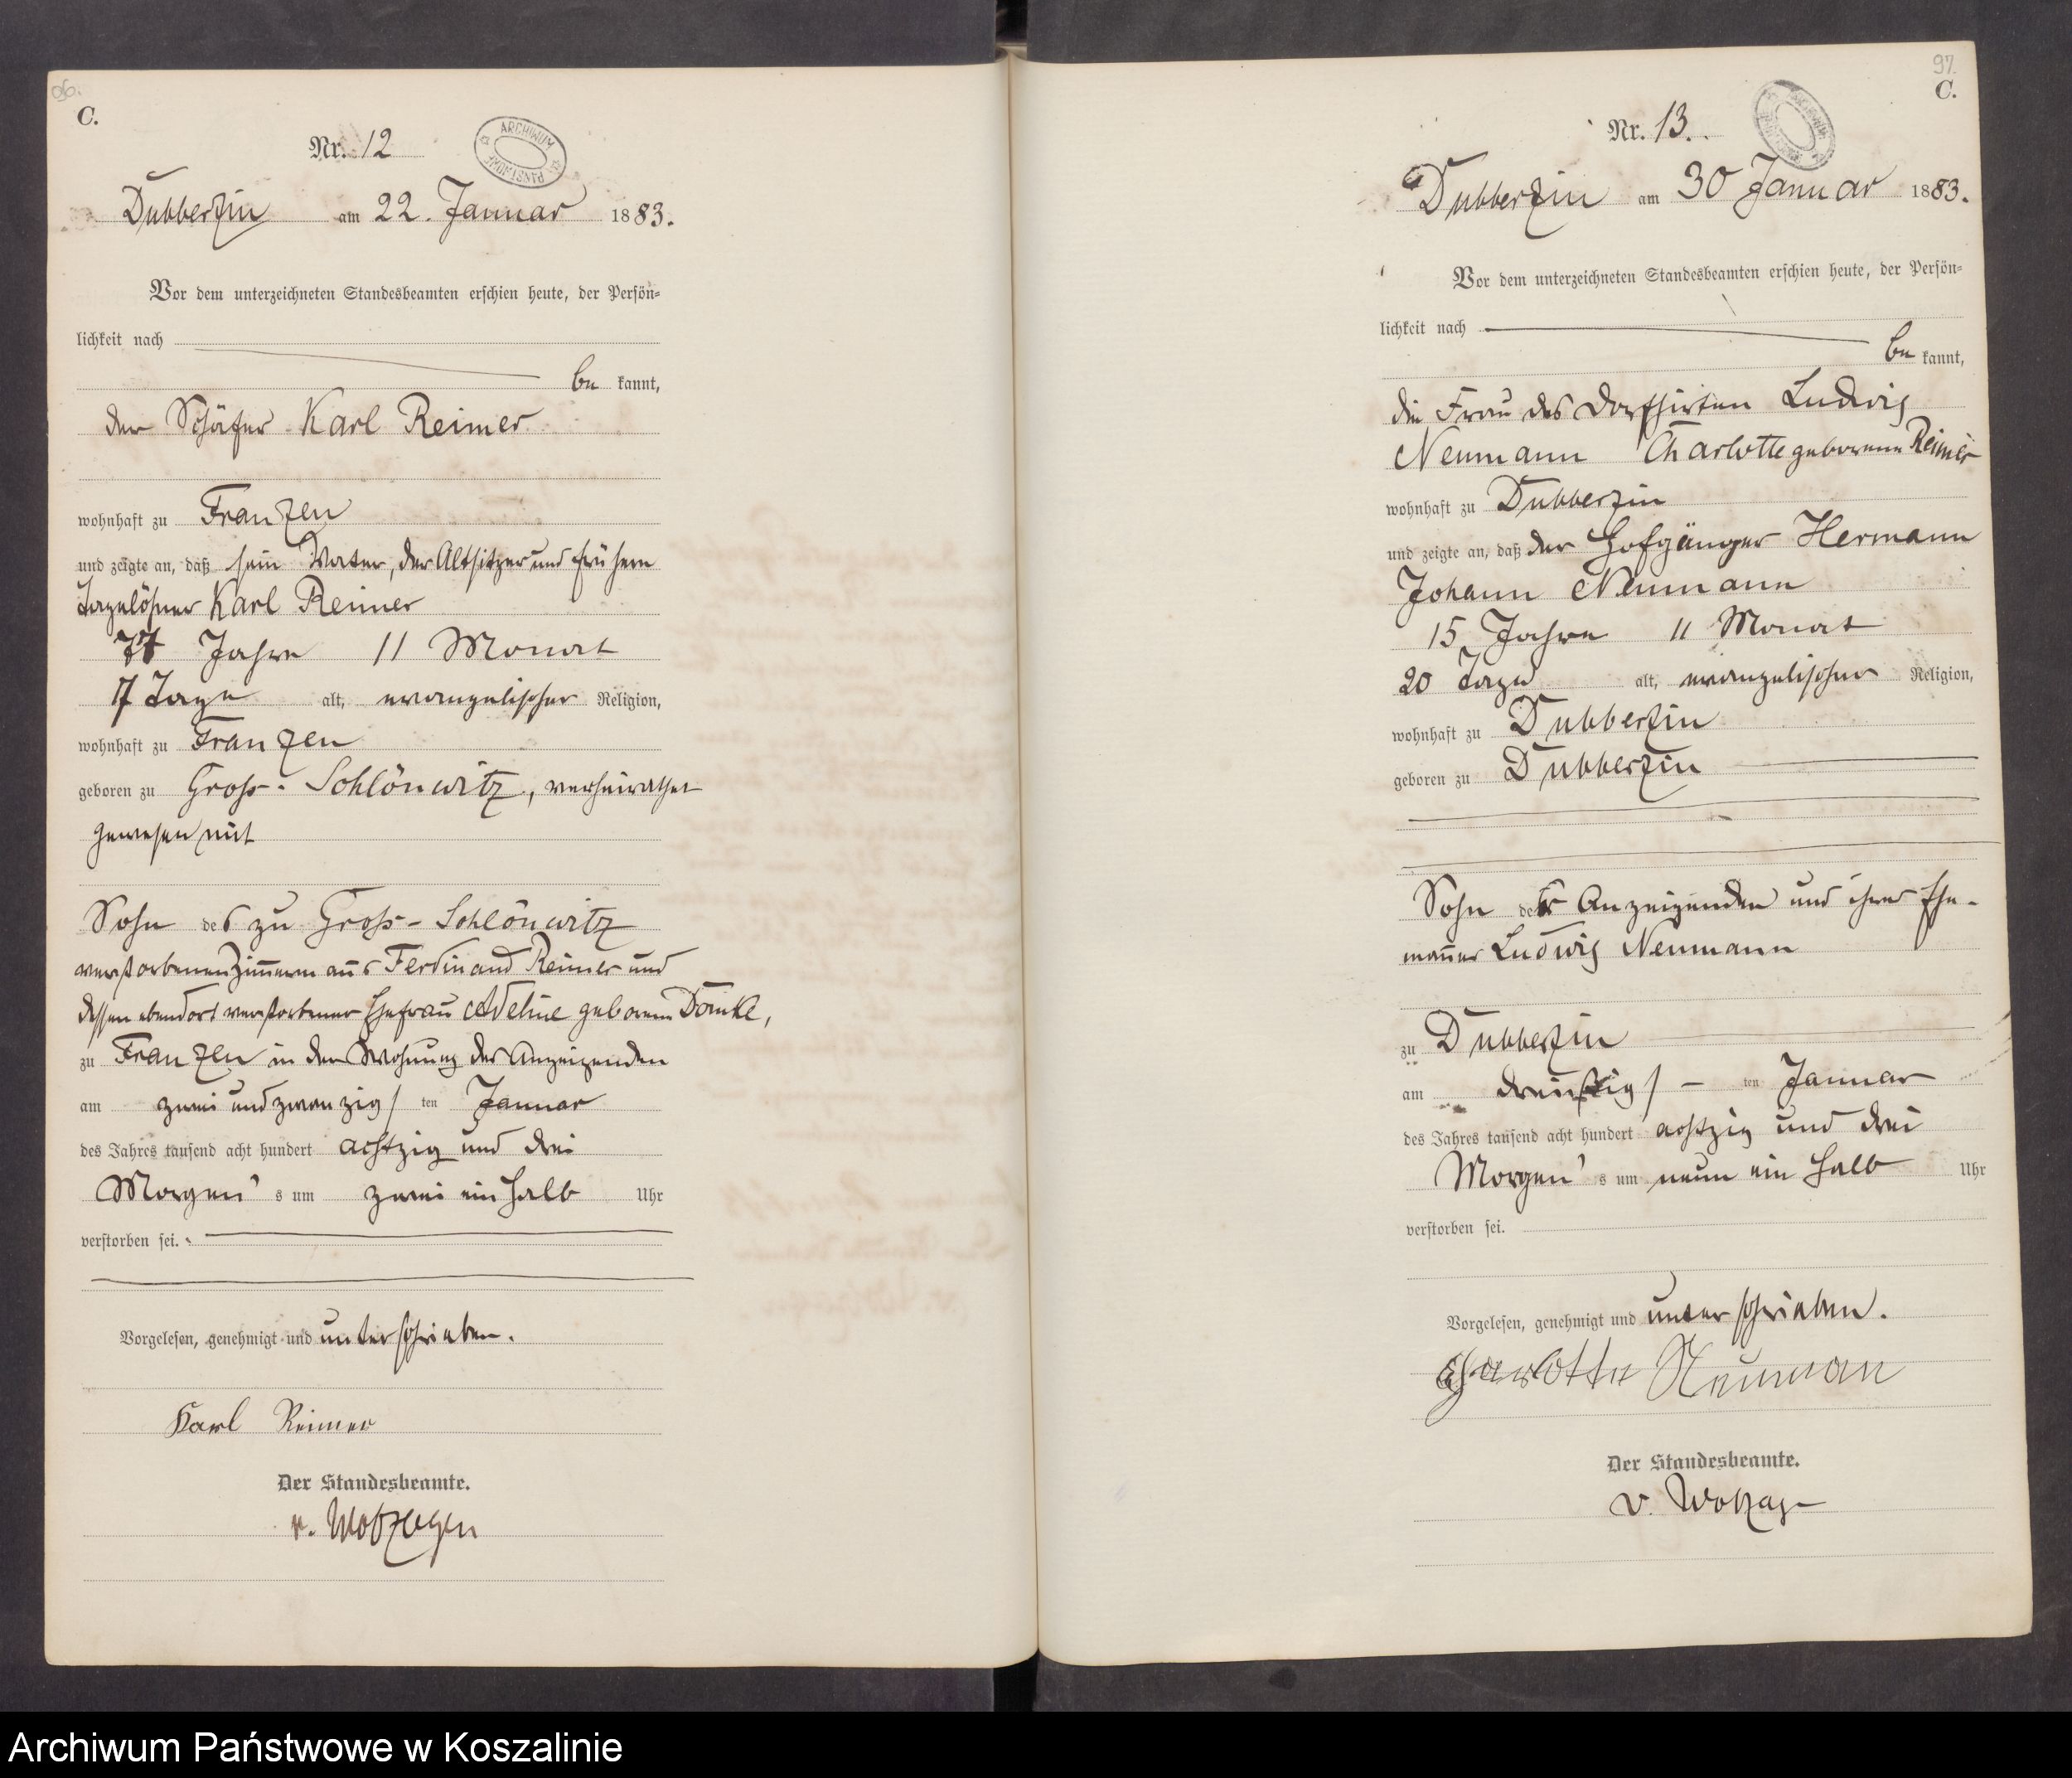 96.
C.
Nr. 12
ARCHIWUM PAŃSTWOWE
Dubberzin am 22. Januar 1883.
Vor dem unterzeichneten Standesbeamten erschien heute, der Persön=
lichkeit nach
be kannt,
der Schäfer Karl Reimer
wohnhaft zu Franzen
und zeigte an, daß sein Vater, der Altsitzer und frühere
Tagelöhner Karl Reimer
Jahre 11 Monat
17 Tage alt, evangelischer Religion,
wohnhaft zu Franzen
geboren zu Gross-Schlönwitz, verheirathet
gewesen mit
Sohn des zu Gross-Schlönwitz
verstorbenen Zimmermanns Ferdinand Reimer und
dessen ebendort verstorbener Ehefrau Adeline geborene
zu Franzen in der Wohnung des Anzeigenden
am zwei und zwanzig ten Januar
des Jahres tausend acht hundert achtzig und drei
Morgen's um zwei ein halb Uhr
verstorben sei.
Vorgelesen, genehmigt und unterschrieben.
Karl Reimer
Der Standesbeamte.
v.
97.
C.
Nr. 13.
Dubberzin am 30 Januar 1883.
Vor dem unterzeichneten Standesbeamten erschien heute, der Persön=
lichkeit nach
be kannt,
die Frau des Dorfhirten Ludwig
Neumann Charlotte geborene Reimer
wohnhaft zu Dubberzin
und zeigte an, daß der Hofgänger Hermann
Johann Neumann
15 Jahre 11 Monat
20 Tage alt, evangelischer Religion,
wohnhaft zu Dubberzin
geboren zu Dubberzin
Sohn der Anzeigenden und ihres Ehe-
mannes Ludwig Neumann
zu Dubberzin
am dreißig ten Januar
des Jahres tausend acht hundert achtzig und drei
Morgen's um neun ein halb Uhr
verstorben sei.
Vorgelesen, genehmigt und unterschrieben.
Charlotte Neuman
Der Standesbeamte.
v.
Archiwum Państwowe w Koszalinie